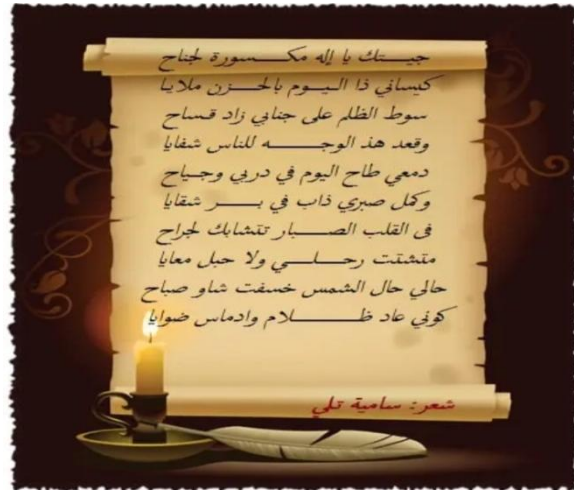 جيتك يا إله مكسورة لجناح
كيساني ذا اليوم بالحزن ملايا
سوط الظلم على جنابي زاد قساح
وقعد هذ الوجه للناس شفايا
دمعي طاح اليوم في دربي وجياح
وكمل صبري ذاب في بر شقايا
في القلب الصبار تتشابك لجراح
متشتت رحلي ولا حبل معايا
حالي حال الشمس خسفت شاو صباح
كوني عاد ظلام وادماس ضوايا
شعر: سامية تلي